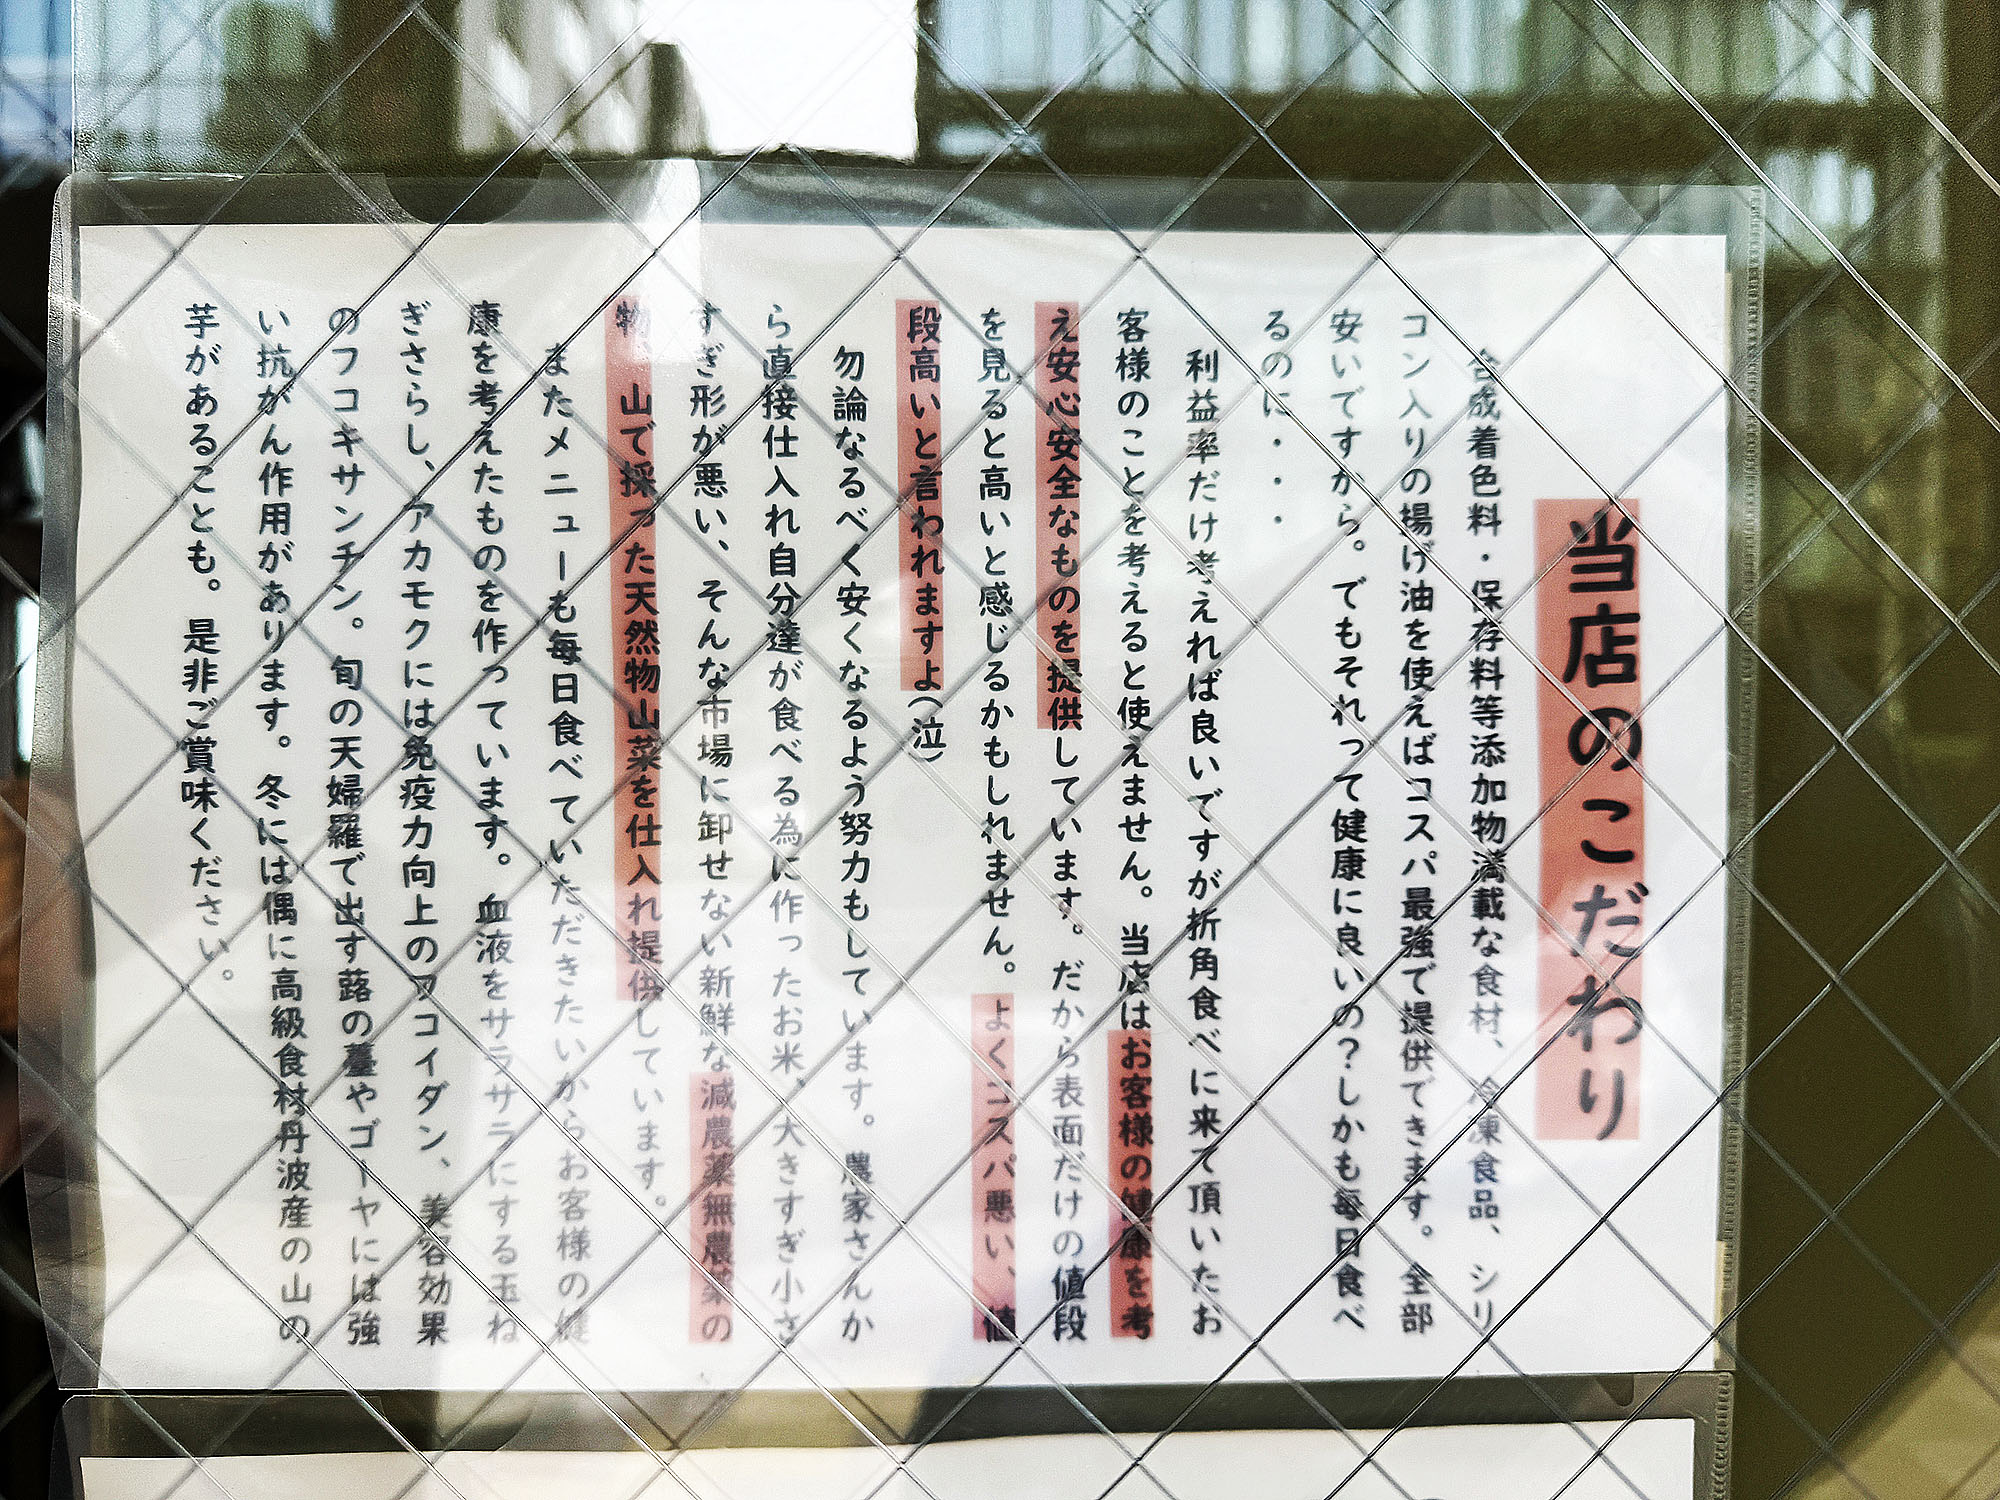 当店のこだわり
合成着色料・保存料等添加物満載な食材、冷凍食品、シリ
コン入りの揚げ油を使えばコスパ最強で提供できます。全部
安いですから。でもそれって健康に良いの？しかも毎日食べ
るのに・・・
利益率だけ考えれば良いですが折角食べに来て頂いたお
客様のことを考えると使えません。当店はお客様の健康を考
え安心安全なものを提供しています。だから表面だけの値段
を見ると高いと感じるかもしれません。よくコスパ悪い、値
段高いと言われますよ（泣）
勿論なるべく安くなるよう努力もしています。農家さんか
ら直接仕入れ自分達が食べる為に作ったお米、大きすぎ小さ
すぎ形が悪い、そんな市場に卸せない新鮮な減農薬無農薬の
物、山で採った天然物山菜を仕入れ提供しています。
またメニューも毎日食べていただきたいからお客様の健
康を考えたものを作っています。血液をサラサラにする玉ね
ぎさらし、アカモクには免疫力向上のフコイダン、美容効果
のフコキサンチン。旬の天婦羅で出す蕗の薹やゴーヤには強
い抗がん作用があります。冬には偶に高級食材丹波産の山の
芋があることも。是非ご賞味ください。